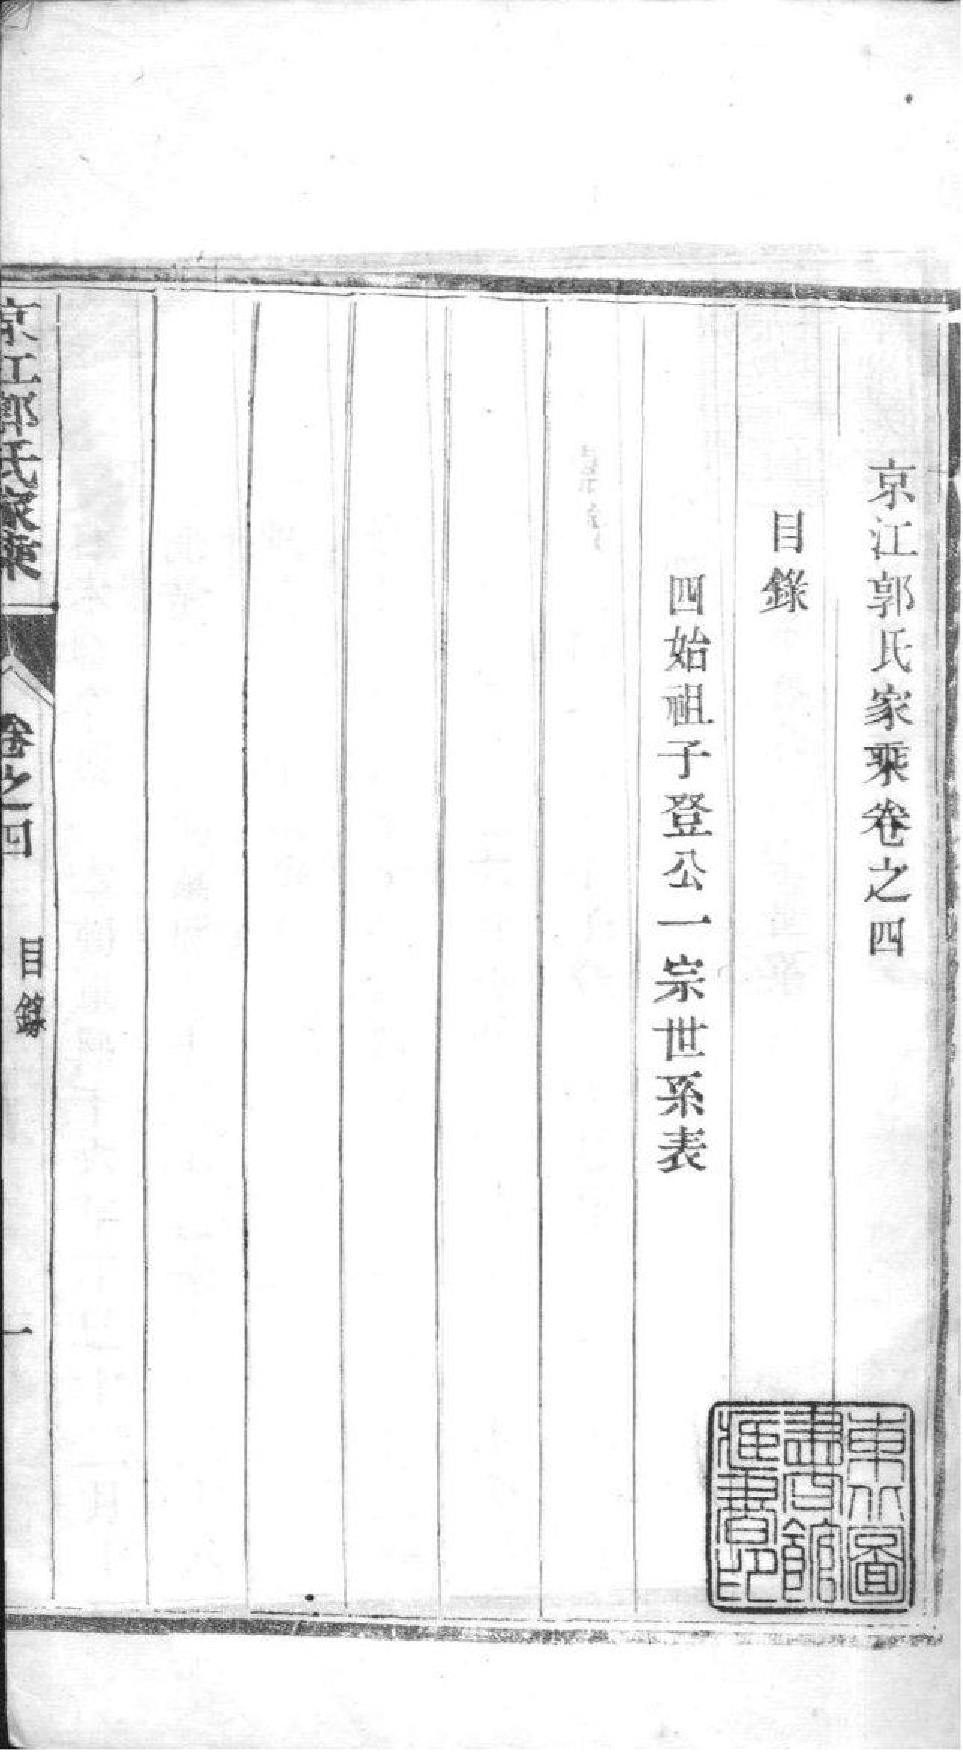 京江郭氏家乘卷之四
目錄
四始祖子登公一宗世系表
京江郭氏家乘
卷之四
目錄
一
東北圖
書館
藏書印